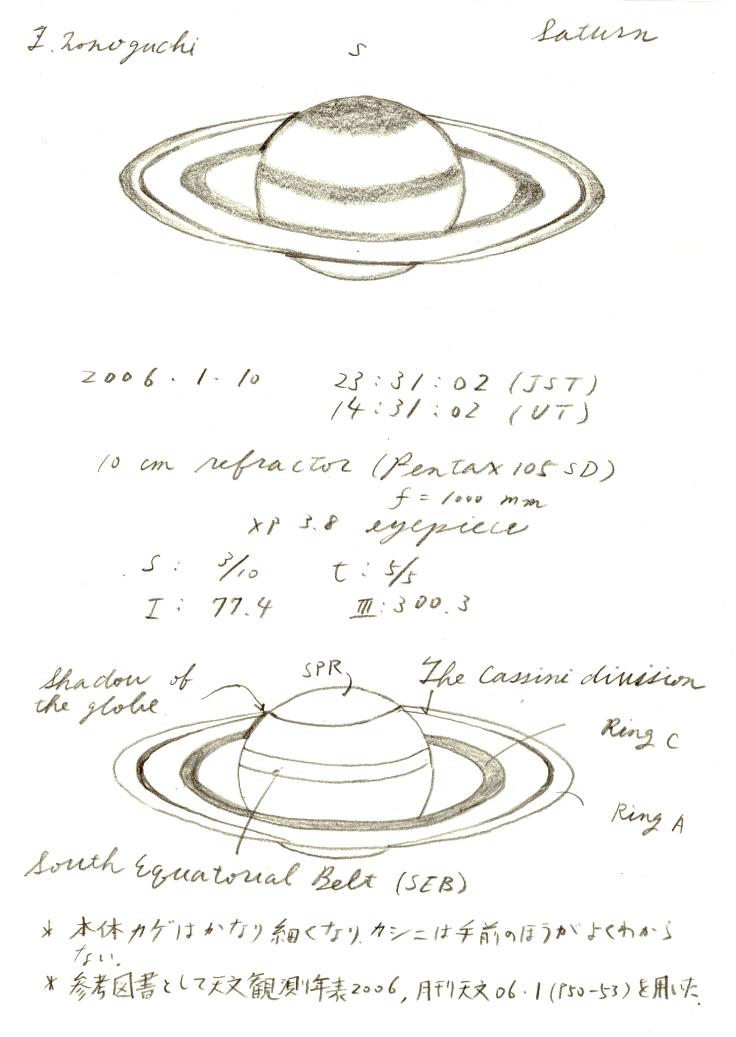 I. Zonoguchi
Saturn
S
2006.1.10 23:31:02 (JST)
14:31:02 (UT)
10 cm refractor (Pentax 105SD)
f = 1000 mm
XP 3.8 eyepiece
S: 3/10 t: 5/5
I: 77.4 III: 300.3
Shadow of
the globe
SPR
The Cassini division
Ring C
Ring A
South Equatorial Belt (SEB)
* 本体カゲはかなり細くなり、カシニは手前のほうがよくわから
ない。
* 参考図書として天文観測年表2006, 月刊天文06.1 (P50-53)を用いた.